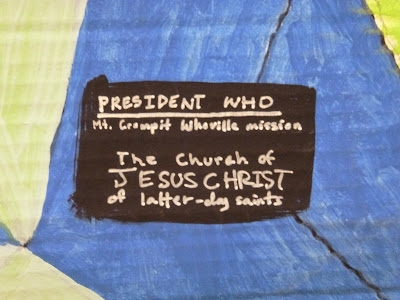 PRESIDENT WHO
Mt. Crumpit Whoville mission
The Church of
JESUS CHRIST
of latter-day saints